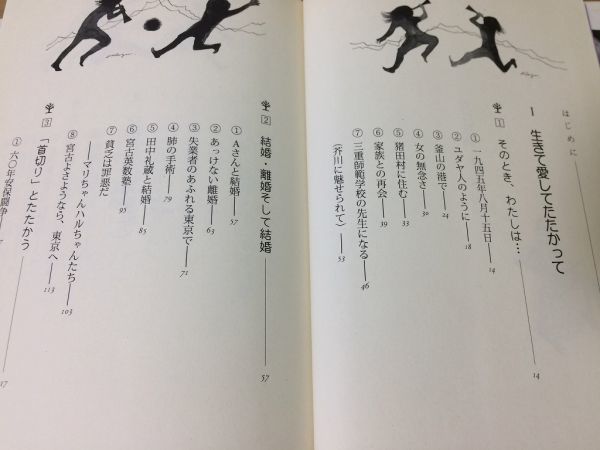 はじめに
I 生きて愛してたたかって 14
1 そのとき、わたしは…
① 一九四五年八月十五日 14
② ユダヤ人のように 18
③ 釜山の港で 24
④ 女の無念さ 30
⑤ 猪田村に住む 33
⑥ 家族との再会 39
⑦ 三重師範学校の先生になる 46
(芥川に魅せられて) 53
2 結婚・離婚そして結婚 57
① Aさんと結婚 57
② あっけない離婚 63
③ 失業者のあふれる東京で 71
④ 肺の手術 79
⑤ 田中礼蔵と結婚 85
⑥ 宮古英数塾 95
⑦ 貧乏は罪悪だ
マリちゃんハルちゃんたち 103
⑧ 宮古よさようなら、東京へ 113
3 「首切り」とたたかう
① 六〇年安保闘争